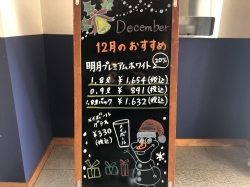 December
12月のおすすめ
明月プレミアムホワイト 20%
1.8ℓ ¥1,654(税込)
0.9ℓ ¥891(税込)
1.8ℓパック ¥1,632(税込)
メイボール
グラス
¥330
(税込)
メイボール